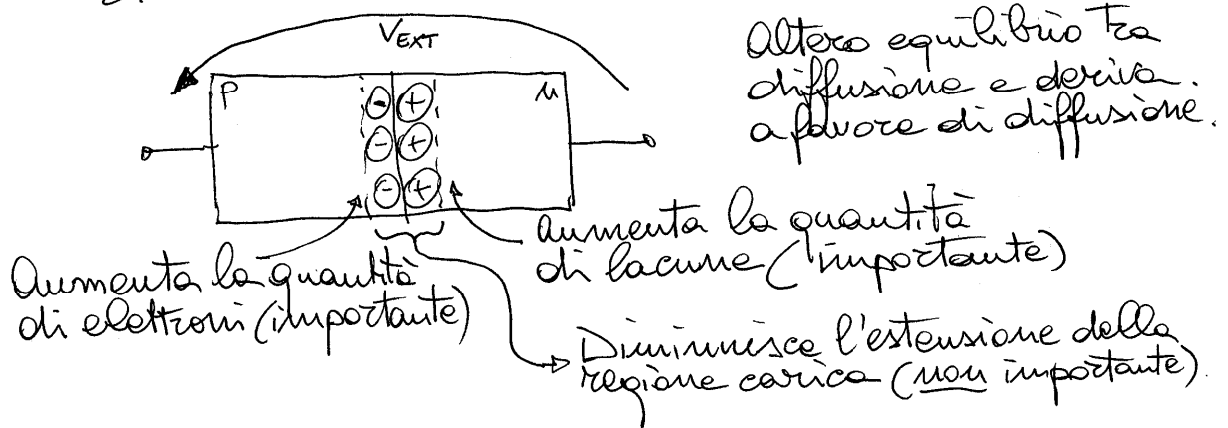 V_EXT
P
n
Altero equilibrio tra
diffusione e deriva.
a favore di diffusione.
- +
- +
- +
aumenta la quantità
di lacune (importante)
Aumenta la quantità
di elettroni (importante)
Diminuisce l'estensione della
regione carica (non importante).